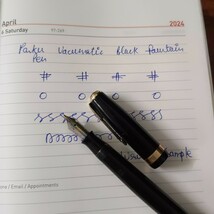 April 2024
Saturday
Parker Vacumatic Black Fountain
Pen
# # # #
o o o o
Sample
one / Email / Appointments